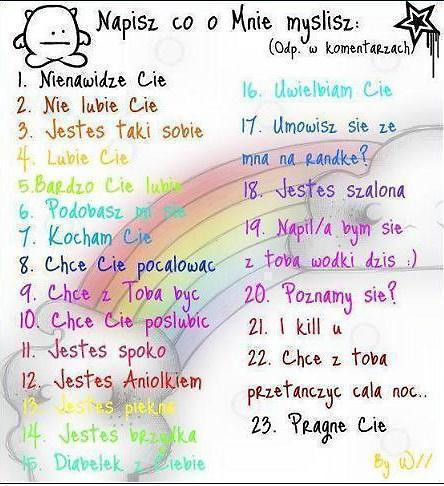 Napisz co o Mnie myslisz:
(Odp. w komentarzach)
1. Nienawidze Cie
2. Nie lubie Cie
3. Jestes taki sobie
4. Lubie Cie
5. Bardzo Cie lubie
6. Podobasz mi sie
7. Kocham Cie
8. Chce Cie pocalowac
9. Chce z Toba byc
10. Chce Cie poslubic
11. Jestes spoko
12. Jestes Aniolkiem
13. Jestes piekna
14. Jestes brzydka
15. Diabelek z Ciebie
16. Uwielbiam Cie
17. Umowisz sie ze
mna na randke?
18. Jestes szalona
19. Napil/a bym sie
z toba wodki dzis :)
20. Poznamy sie?
21. I kill u
22. Chce z toba
przetanczyc cala noc..
23. Pragne Cie
By W//